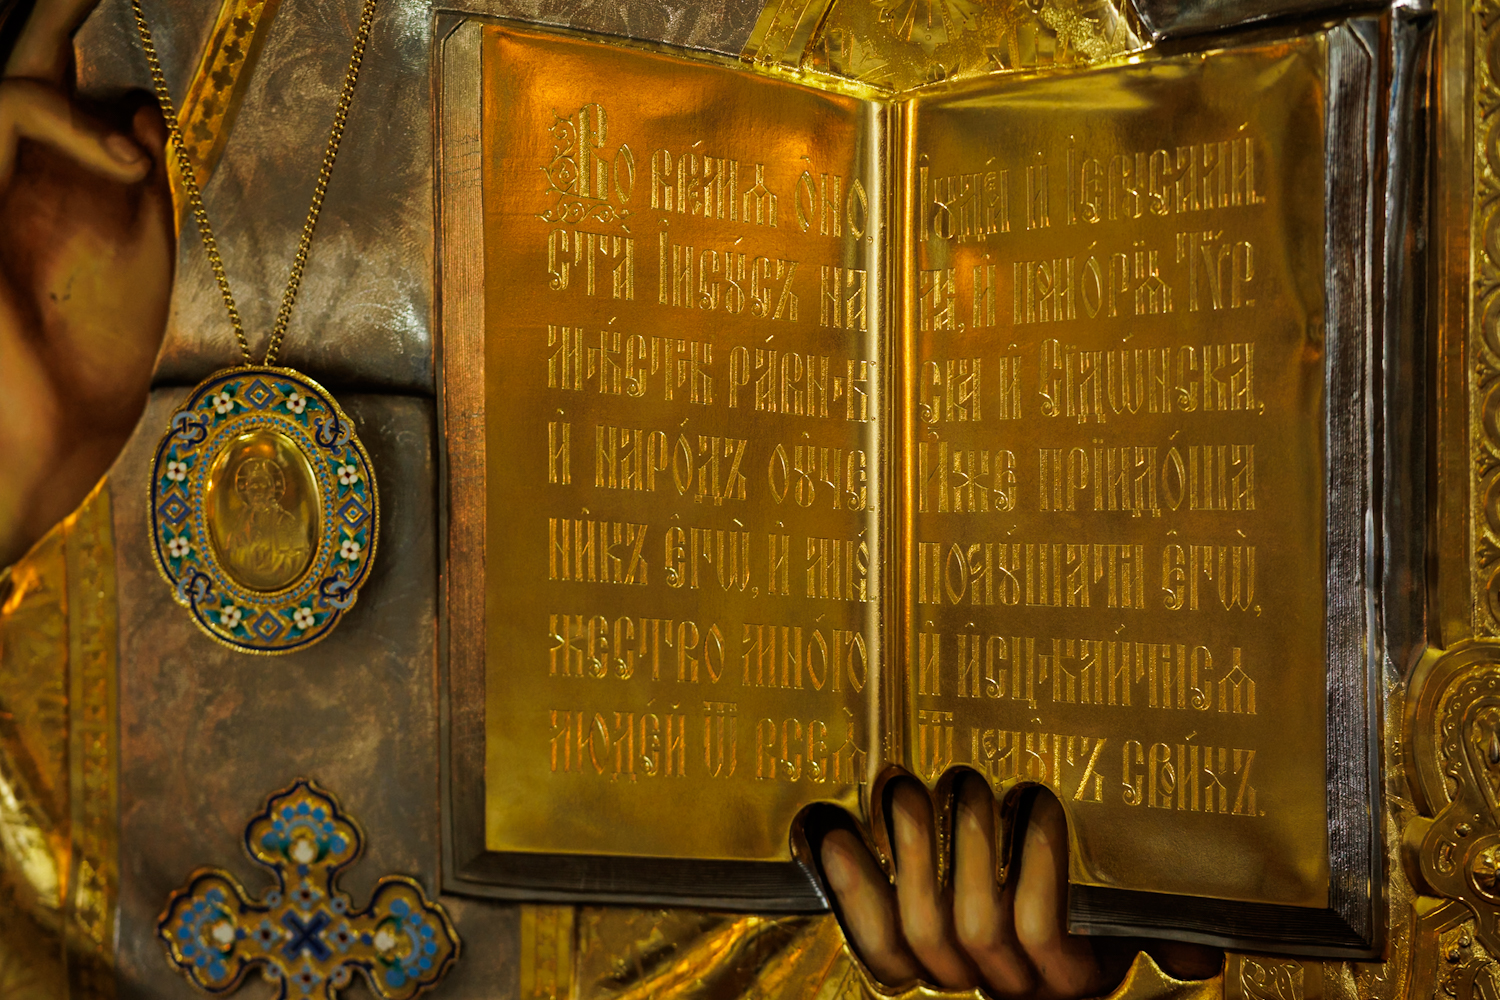 Во вре́мѧ ѻ҆́но
ста̀ І҆исꙋ́съ на
мѣ́стѣ ра́внѣ
и҆ наро́дъ оу҆че
ни́къ є҆гѡ̀, и҆ мно́
жество мно́го
люде́й ѿ всеѧ̀
І҆ꙋде́и и҆ І҆ерꙋсали́
ма, и҆ помо́рїѧ Тѵ́р
ска и҆ Сїдѡ́нска,
И҆́же прїидо́ша
послꙋ́шати є҆гѡ̀,
и҆ и҆сцѣли́тисѧ
ѿ недꙋ́гъ свои́хъ.